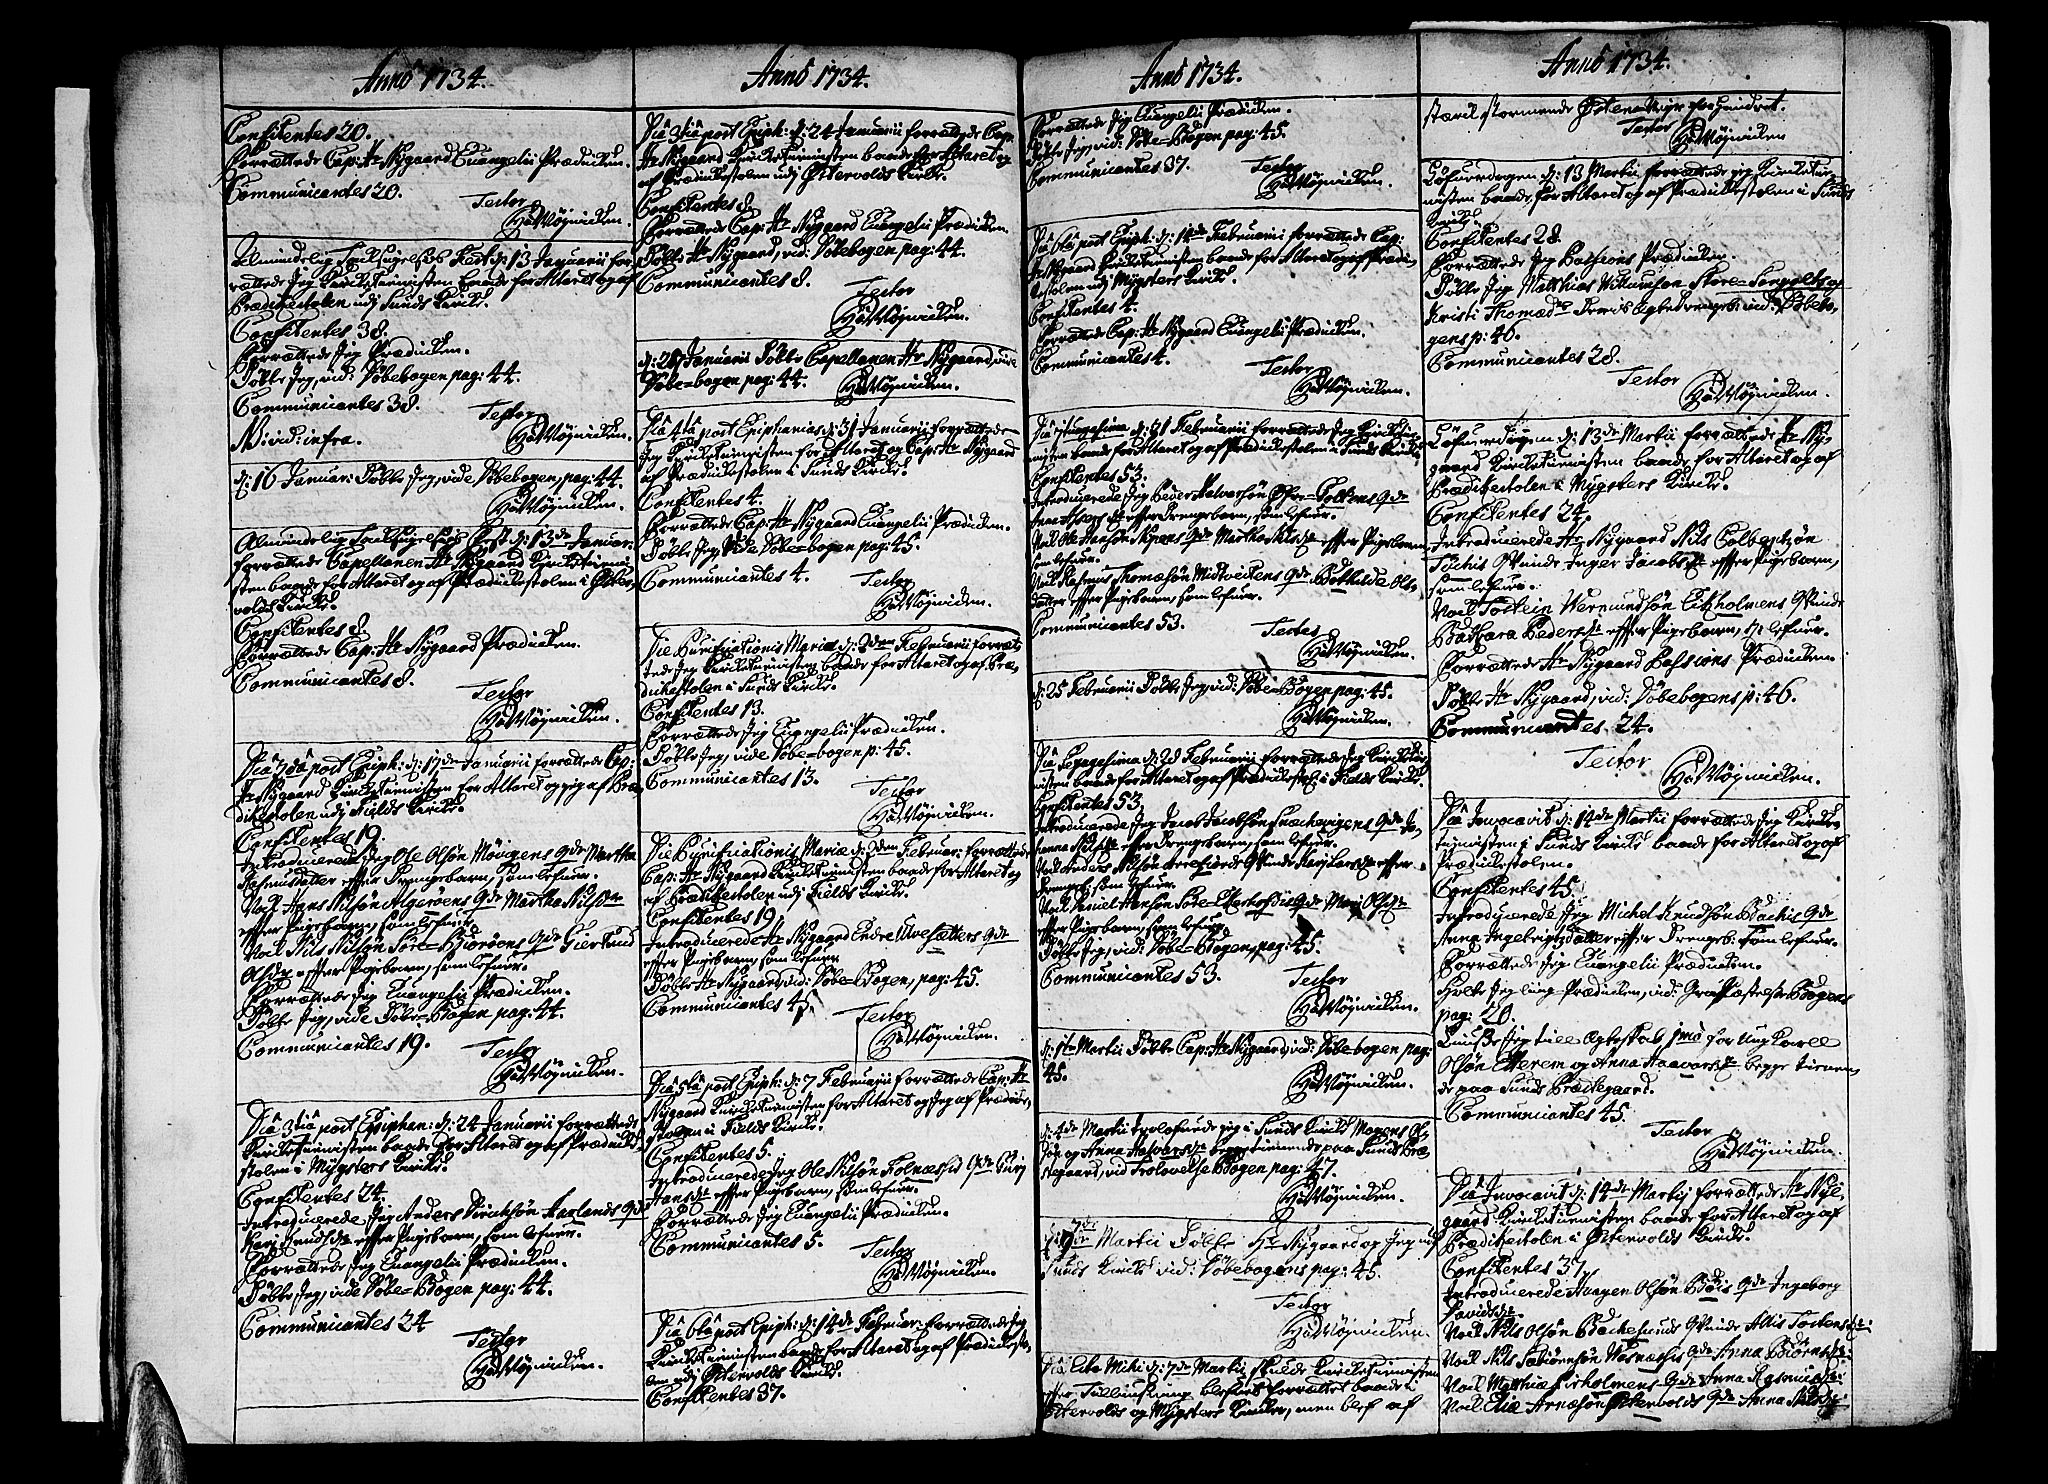 Anno 1734.
Confitentes 20.
Forrættede Cap: Hr Nygaard Euangelii Prædicken.
Communicantes 20.
Testor
HA Møjnicken.
Almindelig Taksigelses Fæst d: 13 Januarii for-
rættede Jeg Kircketienisten baade for Alteret og af
Prædickestolen udj Sunds Kircke.
Confitentes 38.
Forrættede Jeg Prædicken.
Døbte Jeg, vid: Døbebogen pag: 44.
Communicantes 38.
Testor
HA Møjnicken.
NB: vid: infra.
d: 16 Januar: Døbte Jeg, vide Døbebogen, pag: 44.
HA Møjnicken.
Almindelig Taksigelses Fæst d: 13de Januar:
forrættede Capellanen Hr Nygaard Kircketieni-
sten baade for Alteret og af Prædickestolen i Øster-
volds Kircke.
Confitentes 8.
Forrættede Cap: Hr Nygaard Prædicken.
Communicantes 8.
Testor
HA Møjnicken.
Dca 2da post Epiph: d: 17de Januarii forrættede Cap:
Hr Nygaard Kircketienisten for Alteret og jeg af Præ-
dickestolen udj Fields Kircke.
Confitentes 19.
Introducerede Jeg Ole Olsøn Møvigens Qde Martha
Rasmusdatter efter Drengebarn, som lefuer.
Noch Hans Nilsøn Algerøens Qde Martha Nilsdtr
efter Pigebarn, som lefuer.
Noch Nils Nilsøn Tore-Biorøens Qde Giertrud
Olsdtr efter Pigebarn, som lefuer.
Forrættede Jeg Euangelii Prædicken.
Døbte Jeg, vide Døbe-Bogen pag: 44.
Communicantes 19.
Testor
HA Møjnicken.
Dca 3tia post Epiphan: d: 24 Januarii forrættede
Kircketienisten baade for Alteret og af Prædicke-
stolen i Mygsters Kircke.
Confitentes 24.
Introducerede Jeg Anders Hauglands Qde
Kari Knudsdtr efter Pigebarn, som lefuer.
Forrættede Jeg Euangelii Prædicken.
Døbte Jeg, vide Døbe-Bogen pag: 44.
Communicantes 24
Testor
HA Møjnicken.
Anno 1734.
Dca 3tia post Epiph: d: 24 Januarii forrættede Cap:
Hr Nygaard Kircketienisten baade for Alteret og
af Prædickestolen udj Østervolds Kircke.
Confitentes 8.
Forrættede Cap: Hr Nygaard Euangelii Prædicken.
Døbte Hr Nygaard, vid: Døbebogen pag: 44.
Communicantes 8.
Testor
HA Møjnicken.
Januarii Døbte Capellanen Hr Nygaard, vide
Døbe-bogen pag: 44.
HA Møjnicken.
Dca 4ta post Epiphanias d: 31 Januarii forrættede
Jeg Kircketienisten for Alteret og Cap: Hr Nygaard
af Prædickestolen i Sunds Kircke.
Confitentes 4.
Forrættede Cap: Hr Nygaard Euangelii Prædicken.
Døbte Jeg, vide Døbe-bogen pag: 45.
Communicantes 4.
Testor
HA Møjnicken.
Die Purificationis Mariæ d: 2den Februarii forræt-
tede Jeg Kircketienisten baade for Alteret og af Præ-
dickestolen i Sunds Kircke.
Confitentes 13.
Forrættede Jeg Euangelii Prædicken.
Døbte Jeg, vide Døbe-bogen p: 45.
Communicantes 13.
Testor
HA Møjnicken.
Die Purificationis Mariæ d: 2den Februar: forrættede
Cap: Hr Nygaard Kircketienisten baade for Alteret og
af Prædickestolen udj Fields Kircke.
Confitentes 19.
Introducerede Hr Nygaard Endre Ulvesætters Qde
efter Pigebarn, som lefuer
Døbte Hr Nygaard, vid: Døbe-Bogen, pag: 45.
Communicantes
Testor
HA Møjnicken.
Dca 5ta post Epiph: d: 7 Februarii forrættede Cap: Hr
Nygaard Kircketienisten for Alteret og Jeg af Prædicke-
stolen i Fields Kircke.
Confitentes 5.
Introducerede Jeg Ole Nilsøn Folnæssis Qde
Hansdtr efter Pigebarn, som lefuer.
Forrættede Jeg Euangelii Prædicken.
Communicantes 5.
Testor
HA Møjnicken.
Dca 6ta post Epiph: d: 14de Februar: forrættede Jeg
Kircketienisten baade for Alteret og af Prædicke-
len udj Østervolds Kircke.
Confitentes 37.
Anno 1734.
Forrættede Jeg Euangelii Prædicken.
Døbte Jeg, vid: Døbe-Bogen pag: 45.
Communicantes 37.
Testor
HA Møjnicken.
Dca 6ta post Epiph: d: 14de Februarii forrættede Cap:
Hr Nygaard Kircketienisten baade for Alteret og af Prædi-
kestolen udj Mygsters Kircke.
Confitentes 4.
Forrættede Cap: Hr Nygaard Euangelii Prædicken.
Communicantes 4.
Testor
HA Møjnicken.
d: 21 Februarii forrættede Jeg Kircketie-
nisten baade for Alteret og af Prædickestolen i Sunds Kircke.
Confitentes 53.
Introducerede Jeg Peder Halvorsøn Qde
efter Drengebarn, som lefuer.
Noch Ole Hansøn Qde Martha Nilsdtr efter Pigebarn,
som lefuer.
Noch Rasmus Thomæsøn Midtveitens Qde Bothilde Ols-
datter efter Pigebarn, som lefuer.
Communicantes 53.
Testor
HA Møjnicken.
d: 25 Februarii Døbte Jeg, vid: Døbe-Bogen pag: 45.
HA Møjnicken.
Dca Sexagesima d: 28 Februarii forrættede Jeg Kircketie-
nisten baade for Alteret og af Prædickestol: i Fields Kircke.
Confitentes 53.
Introducerede Jeg Jacob Jacobsøn Snechevigens Qde Jo-
hanna Nilsdtr efter Drengebarn, som lefuer.
Noch Anders Nilsøn Arrefiords Qvinde Kari Larsdtr efter
Drengeb: som lefuer.
Noch Hansøn Qde Mari Olsdtr
efter Pigebarn, som lefuer.
Døbte Jeg, vid: Døbe-Bogen, pag: 45.
Communicantes 53.
Testor
HA Møjnicken.
d: 1te Martii Døbte Cap: Hr Nygaard, vid: Døbe-bogen pag:
45.
HA Møjnicken.
d: 4de Martii trolofuede jeg i Sunds Kircke Mogens Ol-
søn og Anna Halvarsdtr begge tienende paa Sunds Præ-
stegaard, vid Trolovelse Bogen pag: 47.
HA Møjnicken.
d: 7de Martii Døbte Hr Nygaard og Jeg udj
Sunds Kircke vid: Døbebogens pag: 45.
Testor
HA Møjnicken.
Dca Esto Mihi d: 7de Martii skulde Kircketienisten
efter Tillysning blefvet forrættet baade i
Østervolds og Mygsters Kircker, men blef af
Anno 1734.
stærk stormende Østena Vejr forhindret.
Testor
HA Møjnicken
Løfuerdagen d: 13 Martii forrættede jeg Kircketie-
nisten baade for Alteret og af Prædickestolen i Sunds
Kircke.
Confitentes 28.
Forrættede Jeg Passions Prædicken.
Døbte Jeg Matthias Willumsøn Store-
Kristi Thomædtr Ægte Drengeb: vid: Døbebo-
gens p: 46.
Communicantes 28.
Testor
HA Møjnicken.
Løfuerdagen d: 13de Martii forrættede Hr Ny-
gaard Kircketienisten baade for Alteret og af
Prædickestolen i Mygsters Kircke.
Confitentes 24.
Introducerede Hr Nygaard Nils Colbentsøn
Tofthis Qvinde Inger Jacobsdtr efter Pigebarn,
som lefuer.
Noch Tostein Wermundsøn Eitzholmens Qvinde
Barbara Pedersdtr efter Pigebarn, s: lefuer.
Forrættede Hr Nygaard Passions Prædicken.
Døbte Hr Nygaard, vid: Døbebogens p: 46.
Communicantes. 24.
Testor
HA Møjnicken.
Dca Invocavit d: 14de Martii forrættede Jeg Kircke-
tienisten i Sunds Kircke baade for Alteret og af
Prædickestolen.
Confitentes 45.
Introducerede Jeg Michel Knudsøn Bachis Qde
Anna Ingebrigtsdatter efter Drengeb: som lefuer.
Forrættede Jeg Euangelii Prædicken.
Holte Jeg Liig-Prædicken, vid: Graf-Fæstelse Bogens
pag: 20.
Lyuste Jeg till Ægteskab 1mo for Ung Karll
Olsøn Etterem og Anna Haavarsdtr begge tienen-
de paa Sunds Præstegaard.
Communicantes 45.
Testor
HA Møjnicken.
Dca Invocavit d: 14de Martij forrættede Hr Nye-
gaard Kircketienisten baade for Alteret og af
Prædickestolen i Østervolds Kircke.
Confitentes 37.
Introducerede Haagen Olsøn Qde Ingeborg
Davidsdtr
Noch Nils Olsøn Backesunds Qvinde Allis Tostensdtr
Noch Nils Wernæssis Qde Anna Biørnsdtr
Noch Matthias Kirholmens Qde Anna Rasmusdtr
Noch Elia Arnæsøn Østervolds Qde Anna Nilsdtr